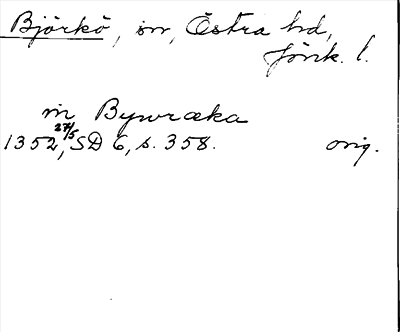 Björkö, sn, Östra hd,
Jönk. l.
in Bywræka
1352 27/5, SD 6, s. 358. orig.